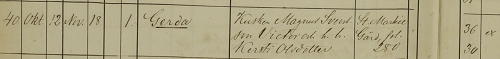 40 Okt. 12 Nov. 18 1. Gerda Kusken Magnus Svens St. Markie 36
son Victor och h. h. Gård, fol.
Kersti Olsdotter 280 30